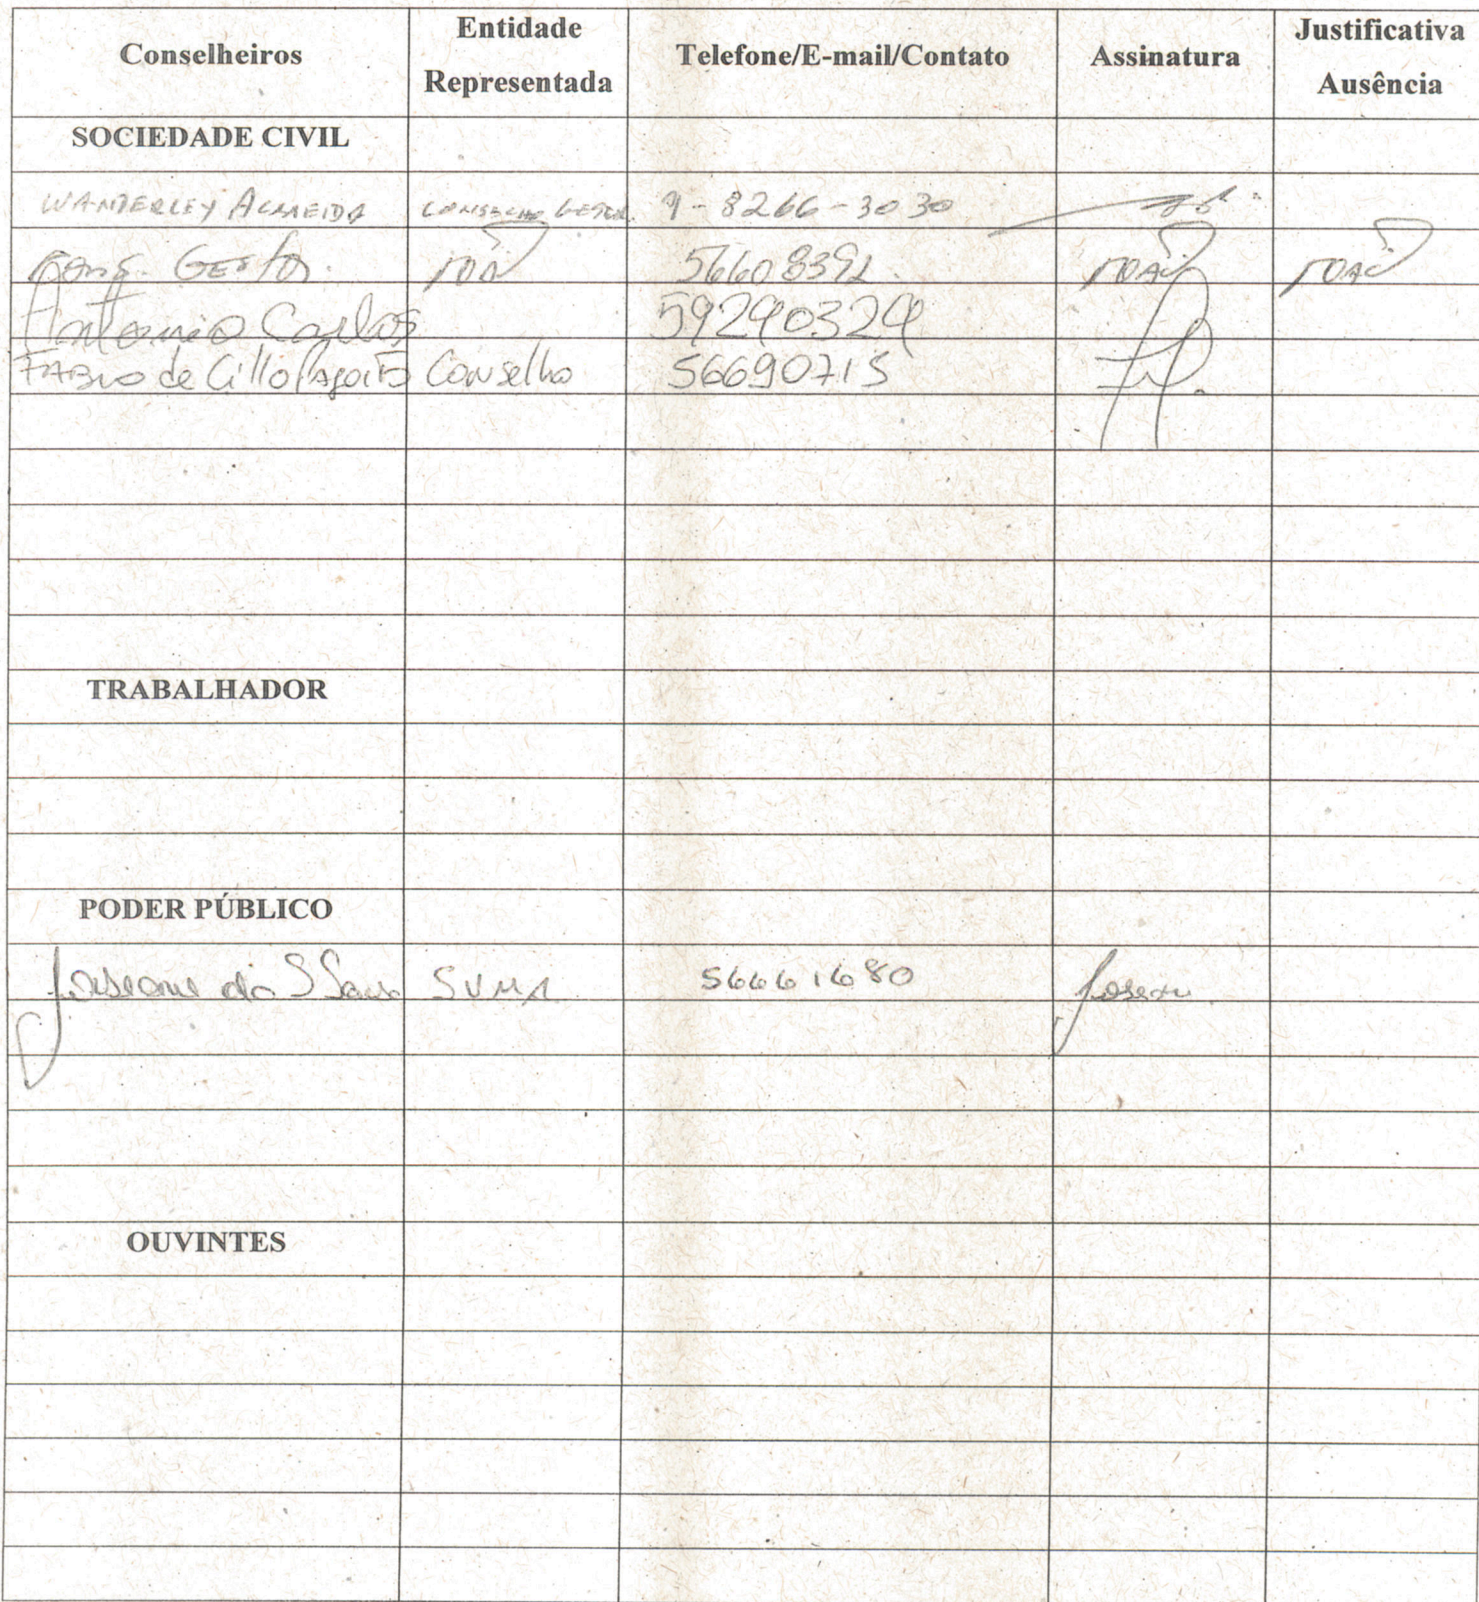 Conselheiros Entidade Representada Telefone/E-mail/Contato Assinatura Justificativa Ausência
SOCIEDADE CIVIL
WANDERLEY ALMEIDA CONSELHO GESTOR 9-8266-3030
Cons. Gestor 56608392
Antonio Carlos 59290329
FABIO de Cillo Conselho 56690715
TRABALHADOR
PODER PÚBLICO
Joseane da S SVMA 56661680
OUVINTES